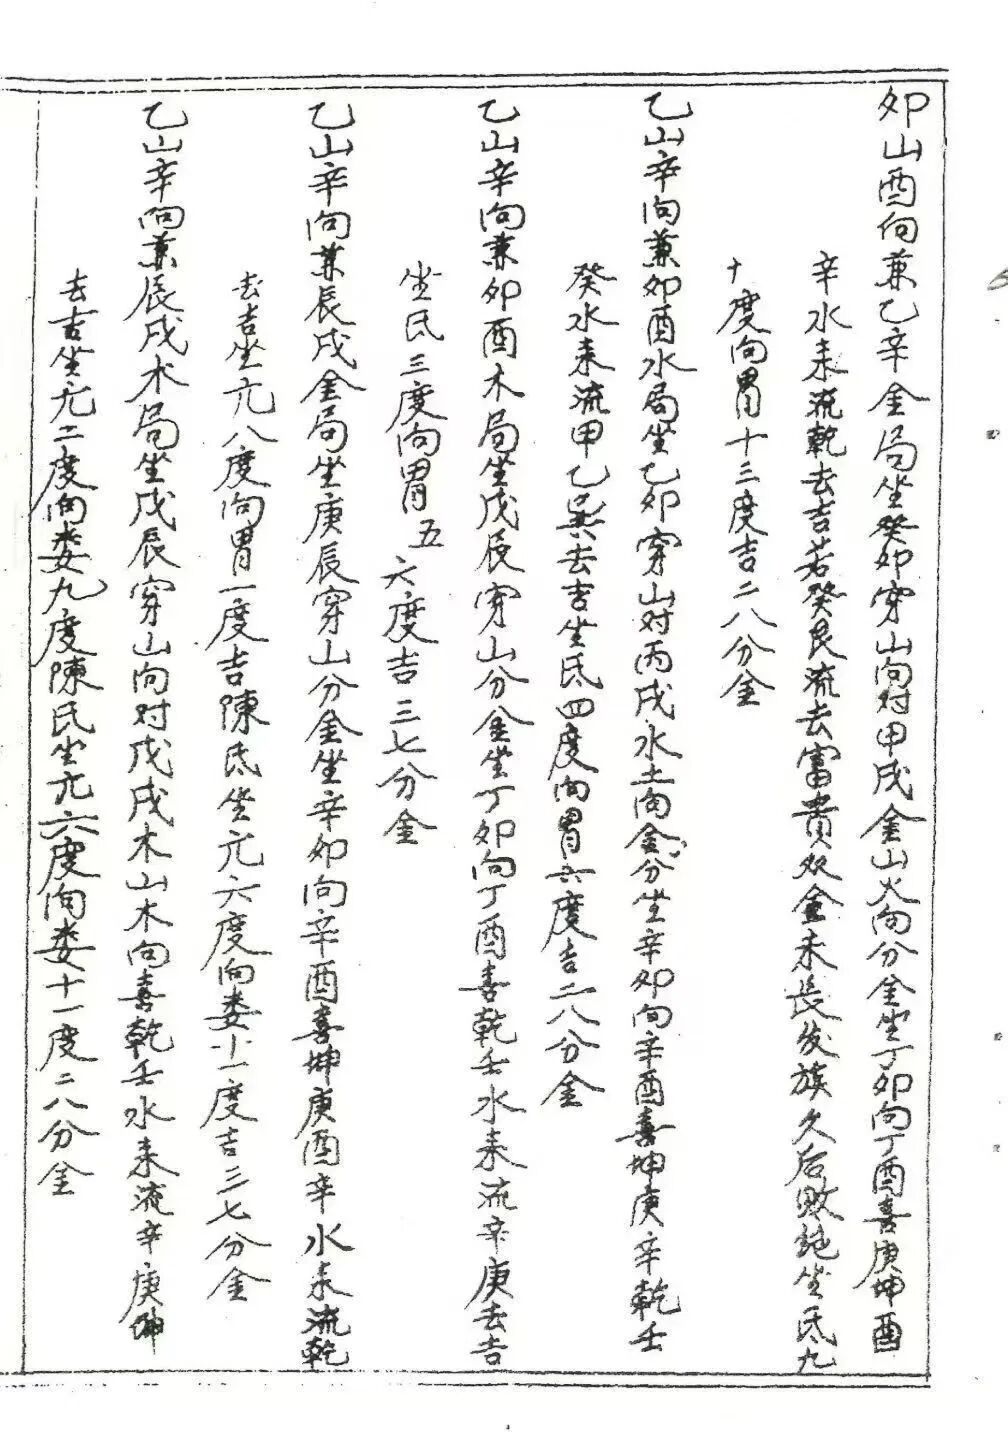 卯山酉向兼乙辛金局坐癸卯穿山向对甲戌金山火向分金坐丁卯向丁酉喜庚坤酉
辛水来流乾去吉若癸艮流去富贵双金未長发旗久后败绝坐氐九
十度向胃十三度吉二八分金
乙山辛向兼卯酉水局坐乙卯穿山对丙戌水土向金分坐辛卯向辛酉喜坤庚辛乾壬
癸水来流甲乙巽去吉坐氐四度向胃六度吉二八分金
乙山辛向兼卯酉木局坐戊辰穿山分金坐丁卯向丁酉喜乾壬水来流辛庚去吉
坐氐三度向胃五六度吉三七分金
乙山辛向兼辰戌金局坐庚辰穿山分金坐辛卯向辛酉喜坤庚酉辛水来流乾
去吉坐亢八度向胃一度吉陳氐坐亢六度向娄十一度吉三七分金
乙山辛向兼辰戌木局坐戊辰穿山向对戊戌木山木向喜乾壬水来流辛庚坤
去吉坐亢二度向娄九度陳氏坐亢六度向娄十一度二八分金